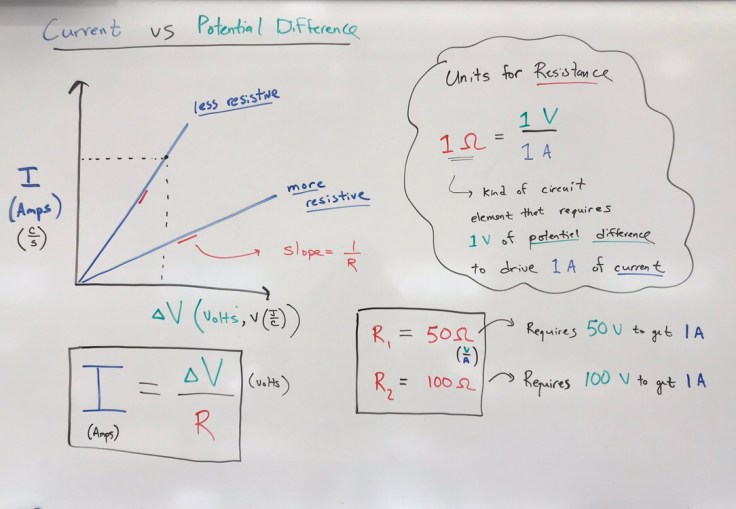 Current vs Potential Difference
less resistive
I
(Amps)
(C/s)
more
resistive
slope = 1/R
ΔV (Volts, V (J/C))
I = ΔV/R
(Amps)
(volts)
Units for Resistance
1 Ω = 1 V / 1 A
↳ Kind of circuit
element that requires
1 V of potential difference
to drive 1 A of current
R₁ = 50 Ω → Requires 50 V to get 1 A
(V/A)
R₂ = 100 Ω → Requires 100 V to get 1 A